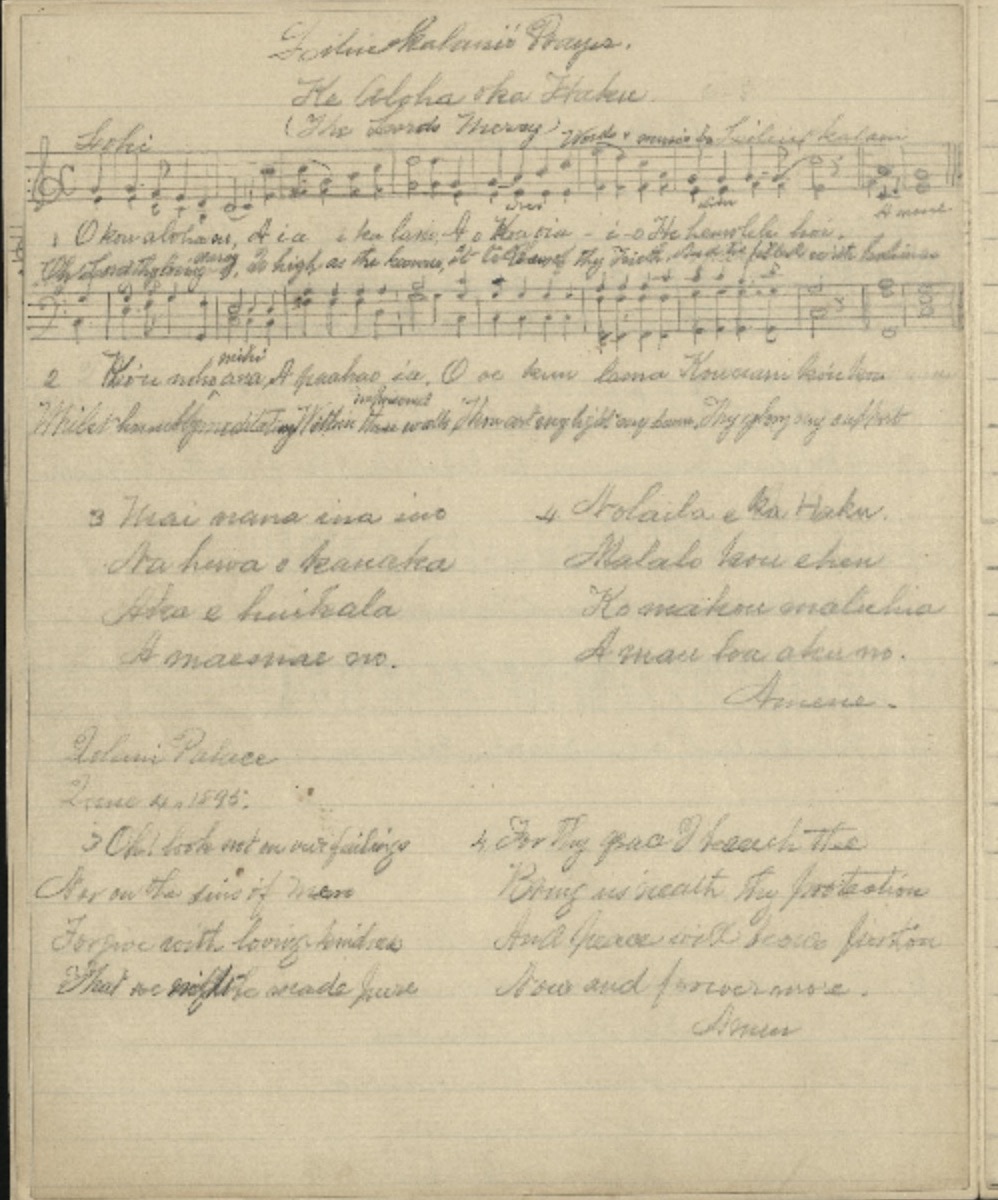 Liliuokalani's Prayer.
Ke Aloha oka Haku.
(The Lords Mercy)
Lohi
Words & music by Liliuokalani
Amene
1 O kou aloha nui, A ia i ka lani, A o Kou oia - i - o He hemolele hoi.
Oh Lord thy loving mercy, Is high as the heavens, It tells us of thy Truth And tis filled with holiness
2 Kou mihi ana, A paahao ia, O oe kuu lama Kou nani kou koo
Whilst humbly meditating Within these walls imprisoned, Thou art my light my haven, Thy glory my support
3 Mai nana ina ino
Na hewa o kanaka
Aka e huikala
A maemae no.
4 Nolaila e ka Haku.
Malalo kou eheu
Ko makou maluhia
A mau loa aku no.
Amene.
Iolani Palace
June 4, 1895.
3 Oh! look not on our failings
Nor on the sins of men
Forgive with loving kindness
That we might be made pure
4 For Thy grace I beseech thee
Bring us neath thy protection
And peace will be our portion
Now and forevermore.
Amen